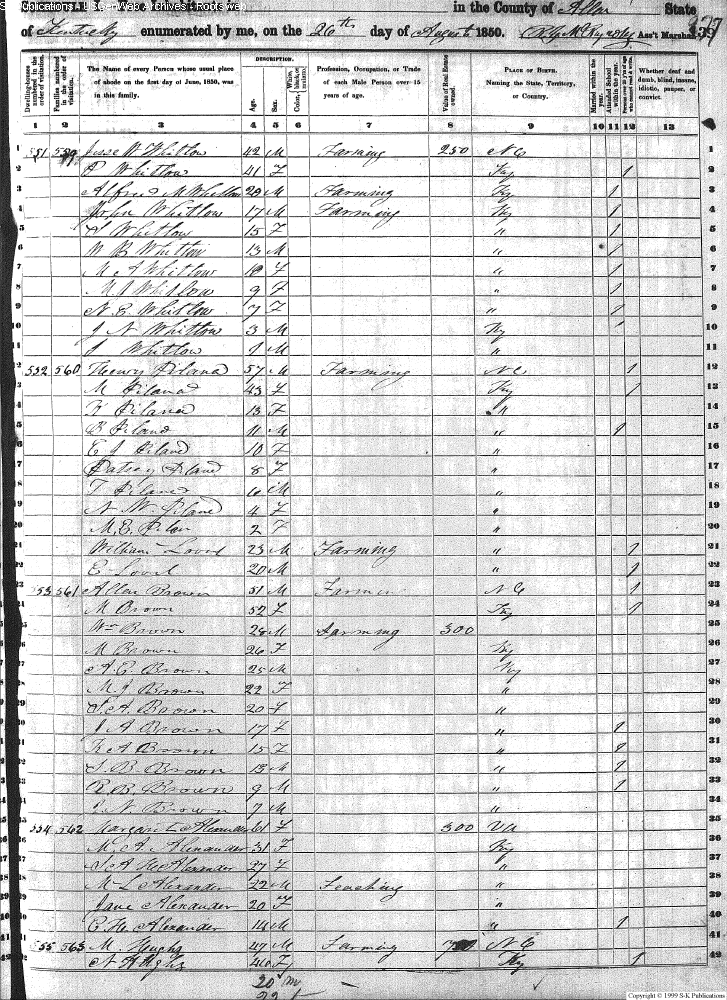 Publications USGenWeb Archives Rootsweb
in the County of Allen State
of Kentucky enumerated by me, on the 26th day of August 1850. Ass't Marshal
Dwelling-houses numbered in the order of visitation.
Families numbered in the order of visitation.
The Name of every Person whose usual place of abode on the first day of June, 1850, was in this family.
DESCRIPTION.
Age.
Sex.
White, black, or mulatto.
Profession, Occupation, or Trade of each Male Person over 15 years of age.
Value of Real Estate owned.
PLACE OF BIRTH. Naming the State, Territory, or Country.
Married within the year.
Attended School within the year.
Persons over 20 y'rs of age who cannot read & write.
Whether deaf and dumb, blind, insane, idiotic, pauper, or convict.
1 2 3 4 5 6 7 8 9 10 11 12 13
1 551 Jesse W Whitlow 42 M Farming 250 NC 1
2 Whitlow 41 F Ky 1 2
3 Alfred M Whitlow 20 M Farming Ky 1 3
4 John Whitlow 17 M Farming Ky 1 4
5 S Whitlow 15 F " 1 5
6 W B Whitlow 13 M " 1 6
7 M A Whitlow F " 1 7
8 M J Whitlow 9 F " 1 8
9 N E Whitlow 7 F " 1 9
10 J N Whitlow 3 M Ky 10
11 Whitlow 1 M " 11
12 552 560 Henry Piland 57 M Farming NC 1 12
13 M Piland 43 F Ky 1 13
14 K Piland 13 F " 14
15 B Piland 11 M " 1 15
16 E J Piland 10 F " 16
17 Patsey Piland 8 F " 17
18 T Piland 6 M " 18
19 N W Piland 4 F " 19
20 M.E. 2 F " 20
21 William 23 M Farming " 1 21
22 E 20 M " 1 22
23 553 561 Allen Brown 51 M Farmer NC 1 23
24 M Brown 52 F Ky 1 24
25 Wm Brown 28 M Farming 300 25
26 M Brown 26 F Ky 26
27 A. E. Brown 25 M Ky 27
28 M. J Brown 22 F " 28
29 S. A. Brown 20 F " 29
30 J A Brown 17 F " 1 30
31 K A Brown 15 F " 1 31
32 S B Brown 13 M " 1 32
33 R B Brown 9 M " 1 33
34 N. Brown 7 M "
35 554 562 Margaret Alexander 61 F 300 Va 35
36 M. A. Alexander 31 F Ky 36
37 Alexander 27 F " 37
38 M L Alexander 22 M Teaching " 38
39 Jane Alexander 20 F " 39
40 Alexander 14 M " 1 40
41 555 563 M. 47 M Farming NC 41
42 40 F Ky 1 42
20 m
22
Copyright © 1999 S-K Publications